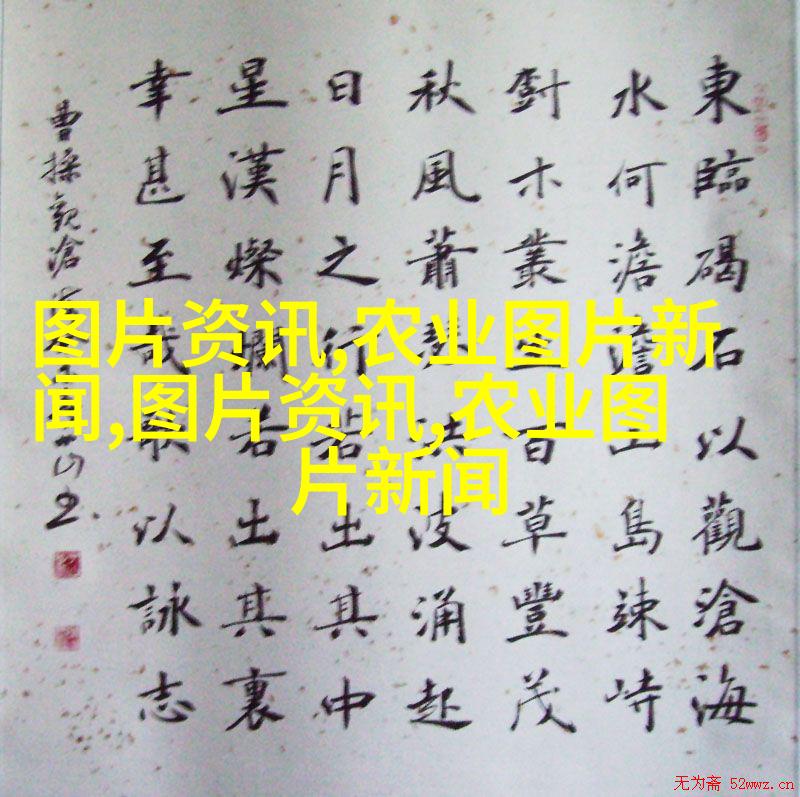 東臨碣石以觀滄海
水何澹澹山島竦峙
尌木叢生百草豐茂
秋風蕭瑟洪波涌起
日月之行若出其中
星漢燦爛若出其裏
幸甚至哉歌以詠志
曹操觀滄
图片资讯,农业图片新
闻,图片资讯,农业图
片新闻
无为斋 52wwz.cn